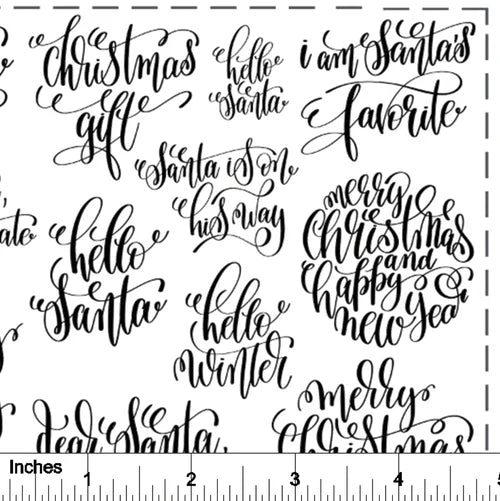 christmas
gift
hello
Santa
i am Santa's
favorite
Santa is on
his way
hello
Santa
merry
christmas
and
happy
new year
hello
winter
dear Santa,
merry
christmas
Inches
1
2
3
4